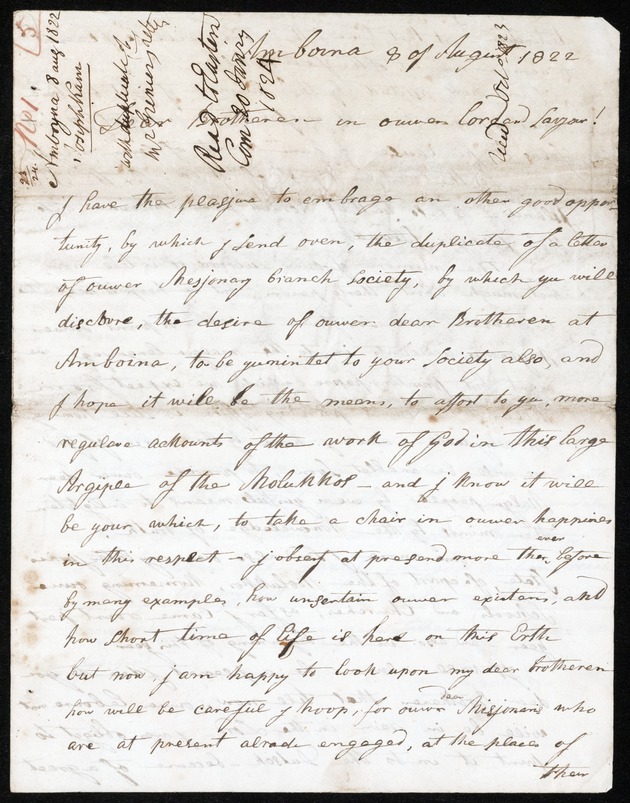 5
No 1.
Amboyna 8 aug 1822
Joseph Kam
with duplicate of
Mr
Red to Eastern
Com 20 Janry
1824
Amboina 8 of August 1822
Brotheren in ouwer Lord and Savjour!
J have the pleasjure to embrage an other good oppor
tunity, by which J send over, the duplicate of a letter
of ouwer Mesjonary branch Society, by which yu will
disclore, the desire of ouwer dear Brotheren at
Amboina, to be yunintet to your Society also, and
J hope it will be the means, to affort to yu, more
regulare ackounts of the work of God in this large
Argiple of the Molukkos - and j know it will
be your which, to take a chair in ouwer happines
in this respect - j obserf at presend more then ever before
by many examples, how unsertain ouwer existens, and
how short time of life is here on this Erth
but now j am happy to look upon my dear brotheren
how will be careful j hoop, for ouwer dear Misjonaris who
are at present alrade engaged, at the place of
their